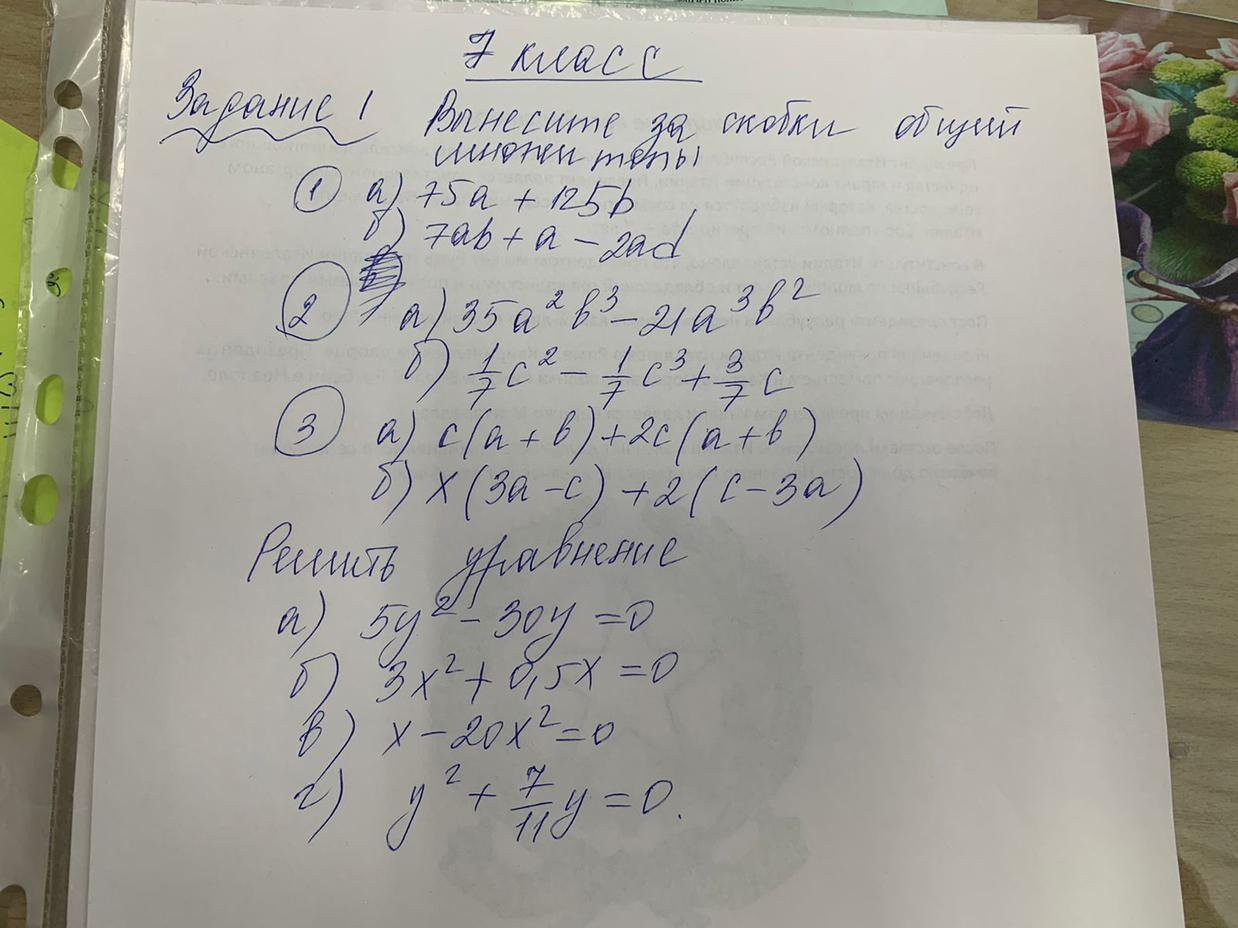 7 класс
Задание 1 Вынесите за скобки общий
множитель
① а) 75a + 125b
б) 7ab + a - 2ad
② а) 35a²b³ - 21a³b²
б) 1/7 c² - 1/7 c³ + 3/7 c
③ а) c(a + b) + 2c(a + b)
б) x(3a - c) + 2(c - 3a)
Решить уравнение
а) 5y² - 30y = 0
б) 3x² + 0,5x = 0
в) x - 20x² = 0
г) y² + 7/11 y = 0.